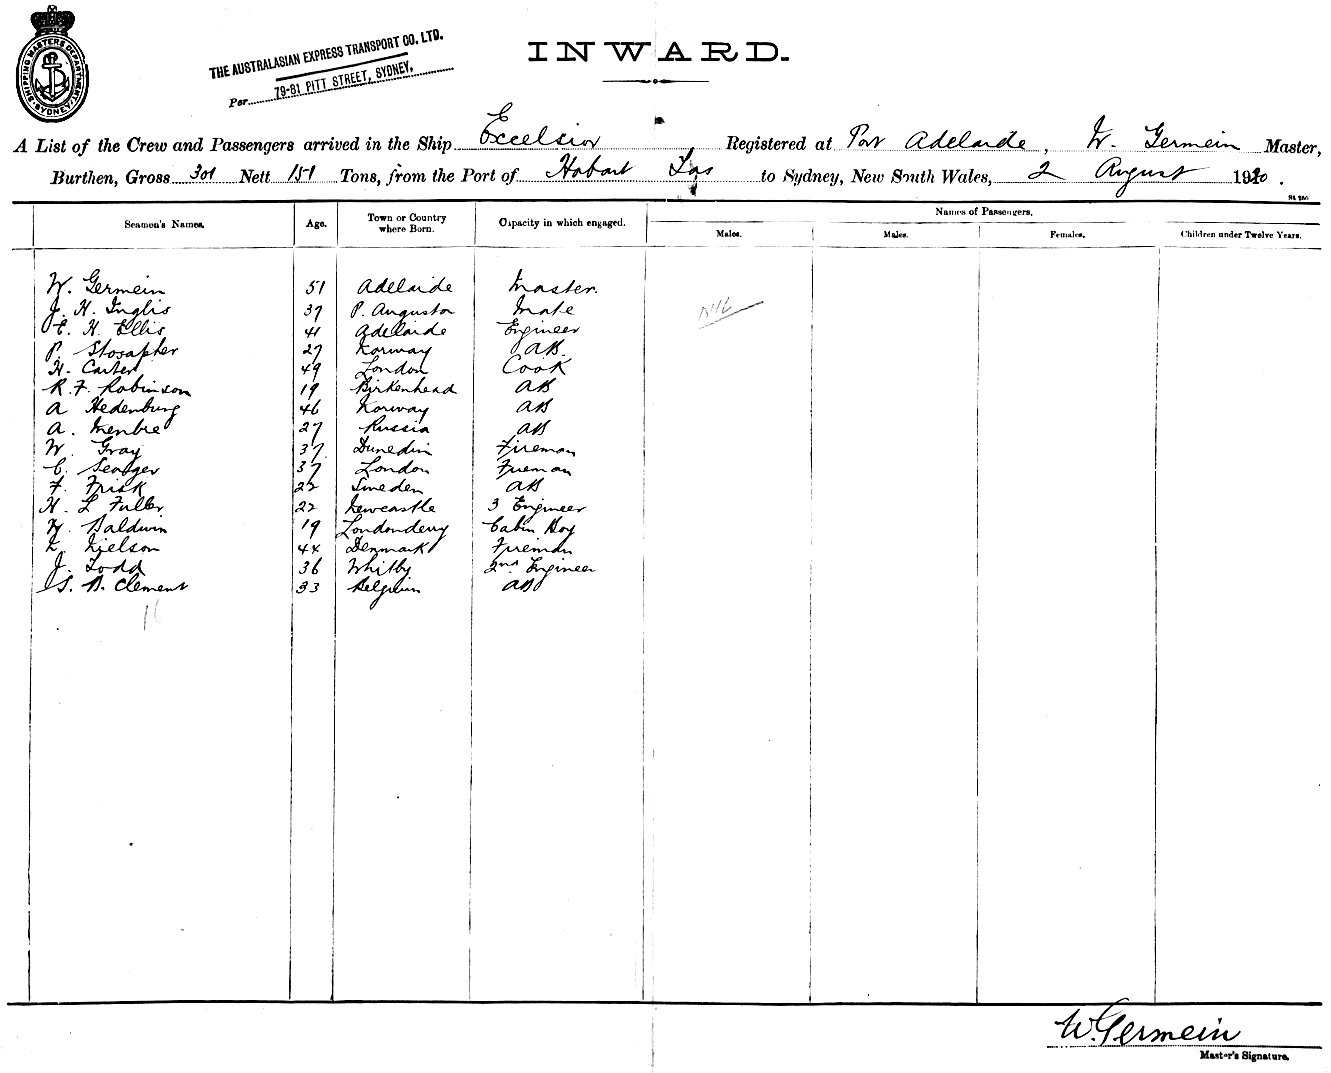 SHIPPING MASTERS DEPARTMENT. SYDNEY.
THE AUSTRALASIAN EXPRESS TRANSPORT CO. LTD.
Per 79-81 PITT STREET, SYDNEY.
INWARD.
A List of the Crew and Passengers arrived in the Ship Excelsior Registered at Port Adelaide, W. Germein Master,
Burthen, Gross 301 Nett 151 Tons, from the Port of Hobart Tas to Sydney, New South Wales, 2 August 1920.
Names of Passengers.
Seamen's Names. Age. Town or Country where Born. Capacity in which engaged. Males. Males. Females. Children under Twelve Years.
W. Germein 51 Adelaide Master.
J. H. Inglis 37 P. Augusta Mate NIL
E. H. Ellis 41 Adelaide Engineer
P. 27 Norway AB.
H. Carter 49 London Cook
R. F. Robinson 19 Birkenhead AB
A Hedenburg 46 Norway AB
A. 27 Russia AB
W. Gray 37 Dunedin Fireman
C. Seager 37 London Fireman
F. Frisk 22 Sweden AB
H. L Fuller 22 Newcastle 3 Engineer
Baldwin 19 Londonderry Cabin Boy
Nielson 44 Denmark Fireman
J. Todd 36 Whitby 2nd Engineer
S. B. Clement 33 Belgium AB
16
W. Germein
Master's Signature.